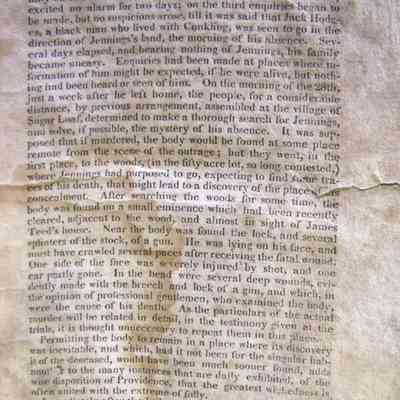 excited no alarm for two days; on the third enquiries began to
be made, but no suspicions arose, till it was said that Jack Hodg-
es, a black man who lived with Conkling, was seen to go in the
direction of Jennings's land, the morning of his absence. Sev-
eral days elapsed, and hearing nothing of Jennings, his family
became uneasy. Enquiries had been made at places where in-
formation of him might be expected, if he were alive, but noth-
ing had been heard or seen of him. On the morning of the 28th,
just a week after he left home, the people, for a considerable
distance, by previous arrangement, assembled at the village of
Sugar Loaf, determined to make a thorough search for Jennings,
and solve, if possible, the mystery of his absence. It was sup-
posed that if murdered, the body would be found at some place
remote from the scene of the outrage; but they went, in the
first place, to the woods, (in the fifty acre lot, so long contested,)
where Jennings had purposed to go, expecting to find some tra-
ces of his death, that might lead to a discovery of the place of
concealment. After searching the woods for some time, the
body was found on a small eminence which had been recently
cleared, adjacent to the wood, and almost in sight of James
Teed's house. Near the body was found the lock, and several
splinters of the stock, of a gun. He was lying on his face, and
must have crawled several paces after receiving the fatal wound.
One side of the face was severely injured by shot, and one
ear partly gone. In the head were several deep wounds, evi-
dently made with the breech and lock of a gun, and which, in
the opinion of professional gentlemen, who examined the body,
were the cause of his death. As the particulars of the actual
murder will be related in detail, in the testimony given at the
trials, it is thought unnecessary to repeat them in this place.
Permitting the body to remain in a place where its discovery
was inevitable, and which, had it not been for the singular hab-
its of the deceased, would have been much sooner found, adds
to the many instances that are daily exhibited, of the
wise disposition of Providence, that the greatest wickedness is
often united with the extreme of folly.